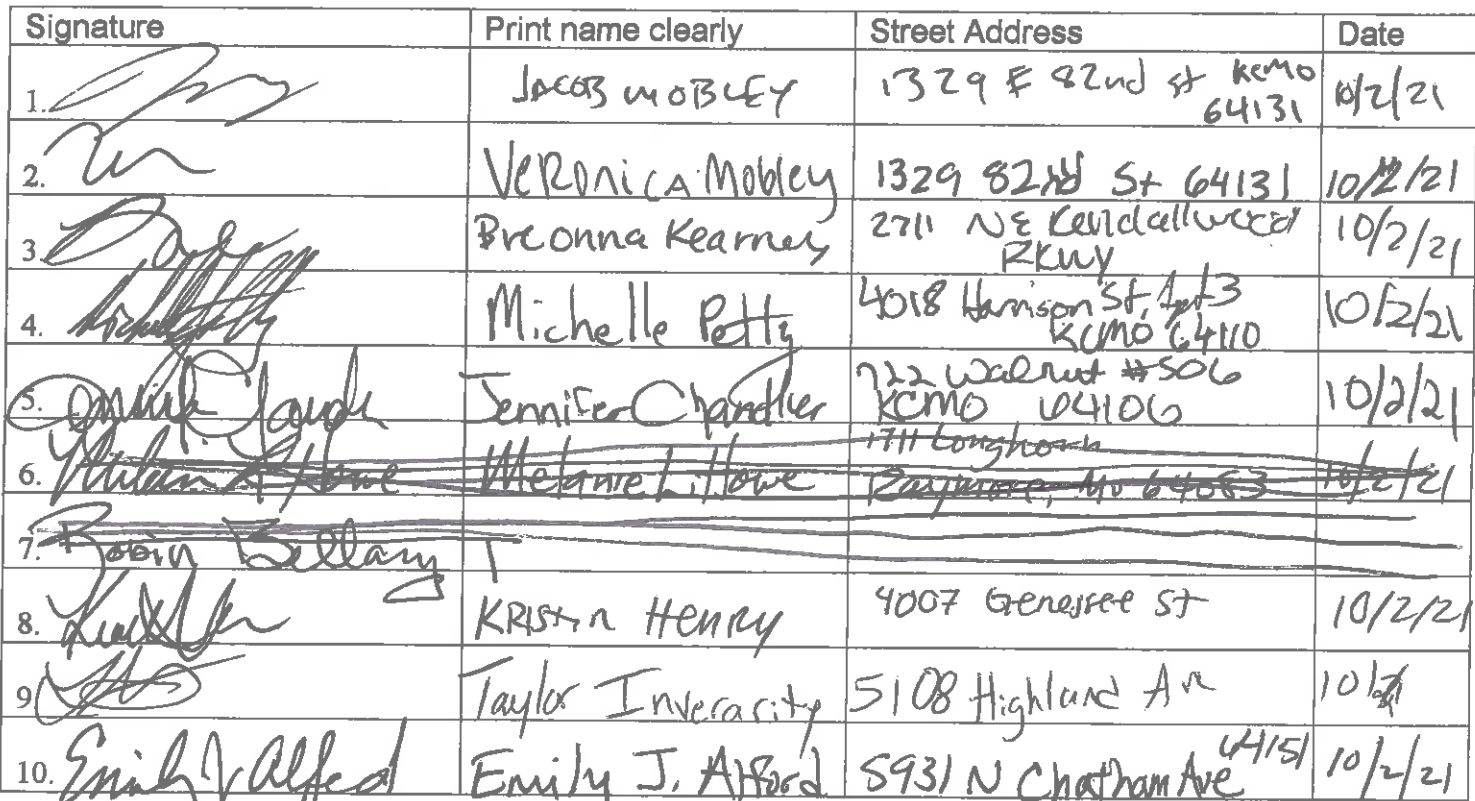 Signature Print name clearly Street Address Date
1. JACOB MOBLEY 1329 E 82nd st KCMO 64131 10/2/21
2. VERONICA Mobley 1329 82nd St 64131 10/2/21
3. Breonna Kearney 2711 NE Kendallwood PKWY 10/2/21
4. Michelle Petty 4018 Harrison St, Apt 3 KCMO 64110 10/2/21
5. Jennifer Chandler 722 Walnut #506 KCMO 64106 10/2/21
6. Melanie L. Howe Melanie L. Howe 1711 Longhorn Raymore, Mo 64083 10/2/21
7. Robin Bellamy
8. KRISTIN HENRY 4007 Genessee St 10/2/21
9 Taylor Inverarity 5108 Highland Av 10/
10. Emily J Alford Emily J. Alford 5931 N Chatham Ave 64151 10/2/21